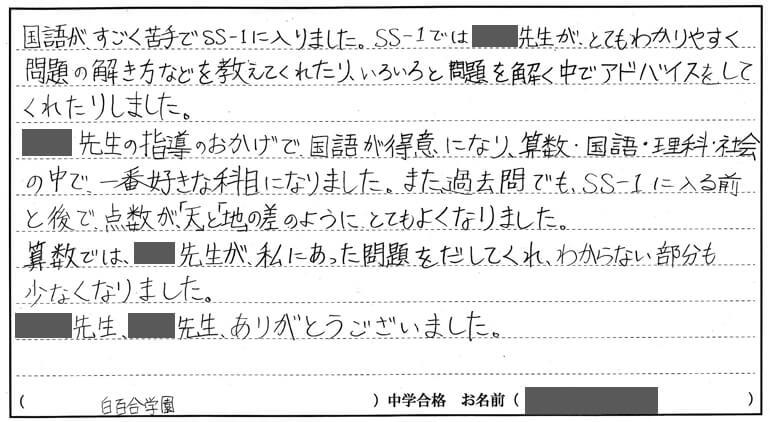 国語が、すごく苦手でSS-1に入りました。SS-1では 先生が、とてもわかりやすく
問題の解き方などを教えてくれたり、いろいろと問題を解く中でアドバイスをして
くれたりしました。
先生の指導のおかげで、国語が得意になり、算数・国語・理科・社会
の中で、一番好きな科目になりました。また、過去問でも、SS-1に入る前
と後で、点数が、「天と「地の差のように とてもよくなりました。
算数では、 先生が、私にあった問題をだしてくれ、わからない部分も
少なくなりました。
先生、 先生、ありがとうございました。
( 白百合学園 ) 中学合格 お名前 ( )